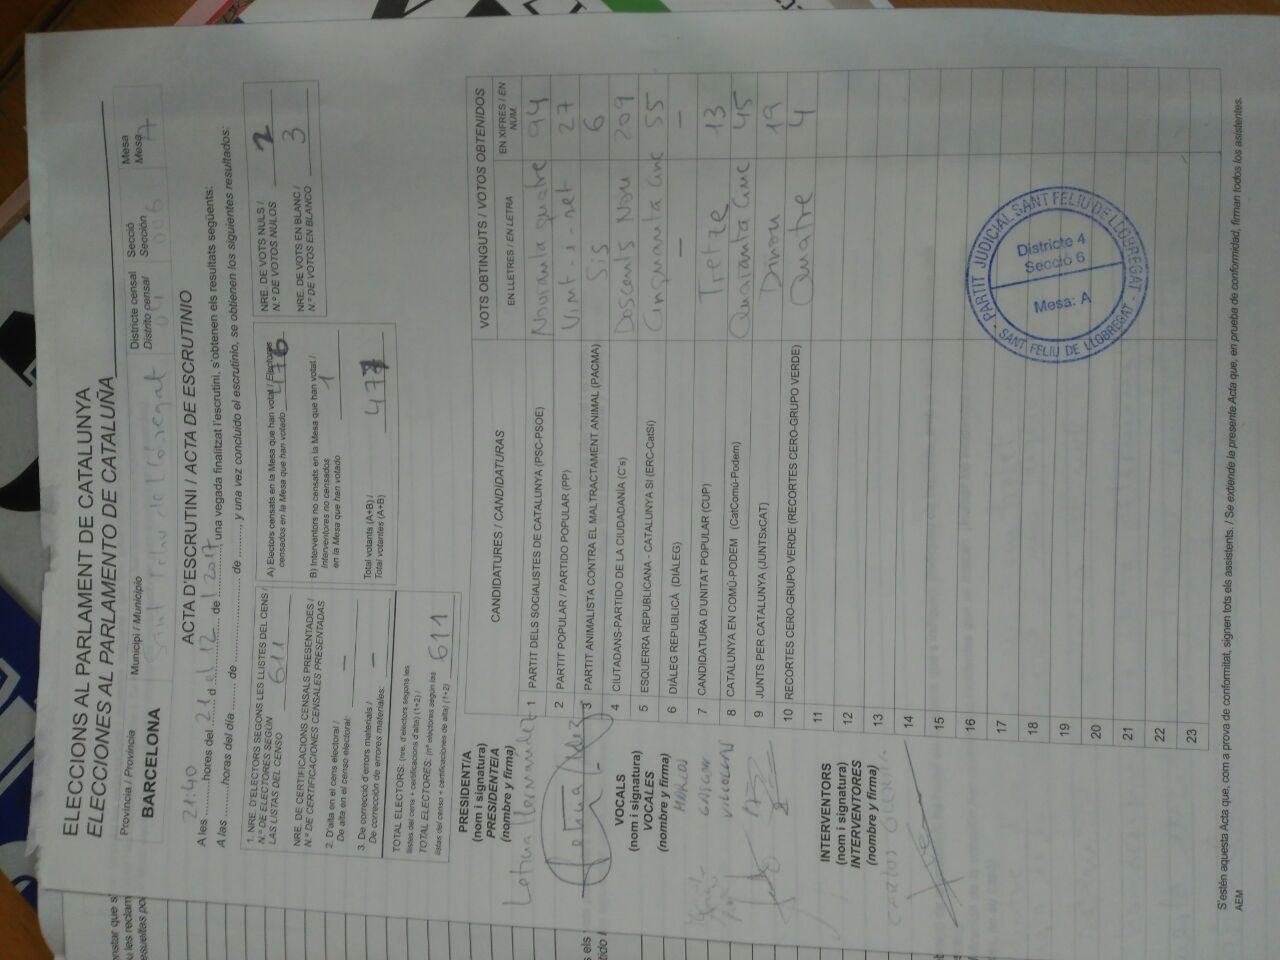 ELECCIONS AL PARLAMENT DE CATALUNYA
ELECCIONES AL PARLAMENTO DE CATALUÑA
Provincia / Provincia
BARCELONA
Municipi / Municipio
Sant Feliu de Llobregat
Districte censal
Distrito censal
04
Secció
Sección
006
Mesa
Mesa
A
ACTA D'ESCRUTINI / ACTA DE ESCRUTINIO
21:40
A les .......... hores del 21 d el 12 de 2017, una vegada finalitzat l'escrutini, s'obtenen els resultats següents:
A las ..........horas del día ........ de .................... de .........., y una vez concluido el escrutinio, se obtienen los siguientes resultados:
1. NRE. D'ELECTORS SEGONS LES LLISTES DEL CENS /
N.º DE ELECTORES SEGÚN
LAS LISTAS DEL CENSO
611
NRE. DE CERTIFICACIONS CENSALS PRESENTADES /
N.º DE CERTIFICACIONES CENSALES PRESENTADAS
2. D'alta en el cens electoral /
De alta en el censo electoral: —
3. De correcció d'errors materials /
De corrección de errores materiales: —
TOTAL ELECTORS: (nre. d'electors segons les
llistes del cens + certificacions d'alta) (1+2) /
TOTAL ELECTORES: (nº electores según las
listas del censo + certificaciones de alta) (1+2)
611
A) Electors censats en la Mesa que han votat / Electores
censados en la Mesa que han votado
476
B) Interventors no censats en la Mesa que han votat /
Interventores no censados
en la Mesa que han votado
1
Total votants (A+B) /
Total votantes (A+B)
477
NRE. DE VOTS NULS /
N.º DE VOTOS NULOS
2
NRE. DE VOTS EN BLANC /
N.º DE VOTOS EN BLANCO
3
CANDIDATURES / CANDIDATURAS
VOTS OBTINGUTS / VOTOS OBTENIDOS
EN LLETRES / EN LETRA
EN XIFRES / EN NÚM.
1 PARTIT DELS SOCIALISTES DE CATALUNYA (PSC-PSOE) Noranta quatre 94
2 PARTIT POPULAR / PARTIDO POPULAR (PP) Vint-i-set 27
3 PARTIT ANIMALISTA CONTRA EL MALTRACTAMENT ANIMAL (PACMA) Sis 6
4 CIUTADANS-PARTIDO DE LA CIUDADANÍA (C's) Doscents Nou 209
5 ESQUERRA REPUBLICANA - CATALUNYA SÍ (ERC-CatSí) Cinquanta Cinc 55
6 DIÀLEG REPUBLICÀ (DIÀLEG) — —
7 CANDIDATURA D'UNITAT POPULAR (CUP) Tretze 13
8 CATALUNYA EN COMÚ-PODEM (CatComú-Podem) Quaranta Cinc 45
9 JUNTS PER CATALUNYA (JUNTSxCAT) Dinou 19
10 RECORTES CERO-GRUPO VERDE (RECORTES CERO-GRUPO VERDE) Quatre 4
11
12
13
14
15
16
17
18
19
20
21
22
23
PRESIDENT/A
(nom i signatura)
PRESIDENTE/A
(nombre y firma)
Leticia Hernandez
VOCALS
(nom i signatura)
VOCALES
(nombre y firma)
MARCOS
INTERVENTORS
(nom i signatura)
INTERVENTORES
(nombre y firma)
CARLOS
PARTIT JUDICIAL SANT FELIU DE LLOBREGAT
Districte 4
Secció 6
Mesa: A
- SANT FELIU DE LLOBREGAT -
S'estén aquesta Acta que, com a prova de conformitat, signen tots els assistents. / Se extiende la presente Acta que, en prueba de conformidad, firman todos los asistentes.
AEM